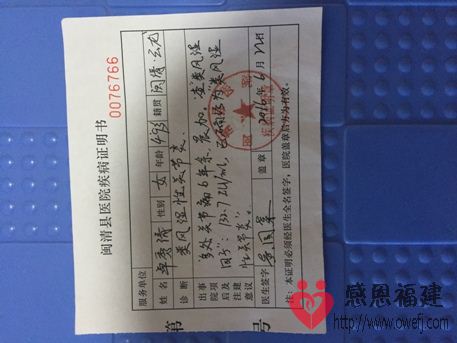 闽清县医院疾病证明书
0076766
服务单位
姓名 性别 女 年龄 49岁 籍贯 闽清
诊断 类风湿性关节炎
出事
院项
后及
注建
意议
多处关节痛6年余,
因子: 132.7 IU/ml,
性关节炎。
医生签字 盖章 2016年6月22日
注:本证明必须经医生全名签字,医院盖章后方为有效。
第 号
感恩福建
http://www.owefj.com